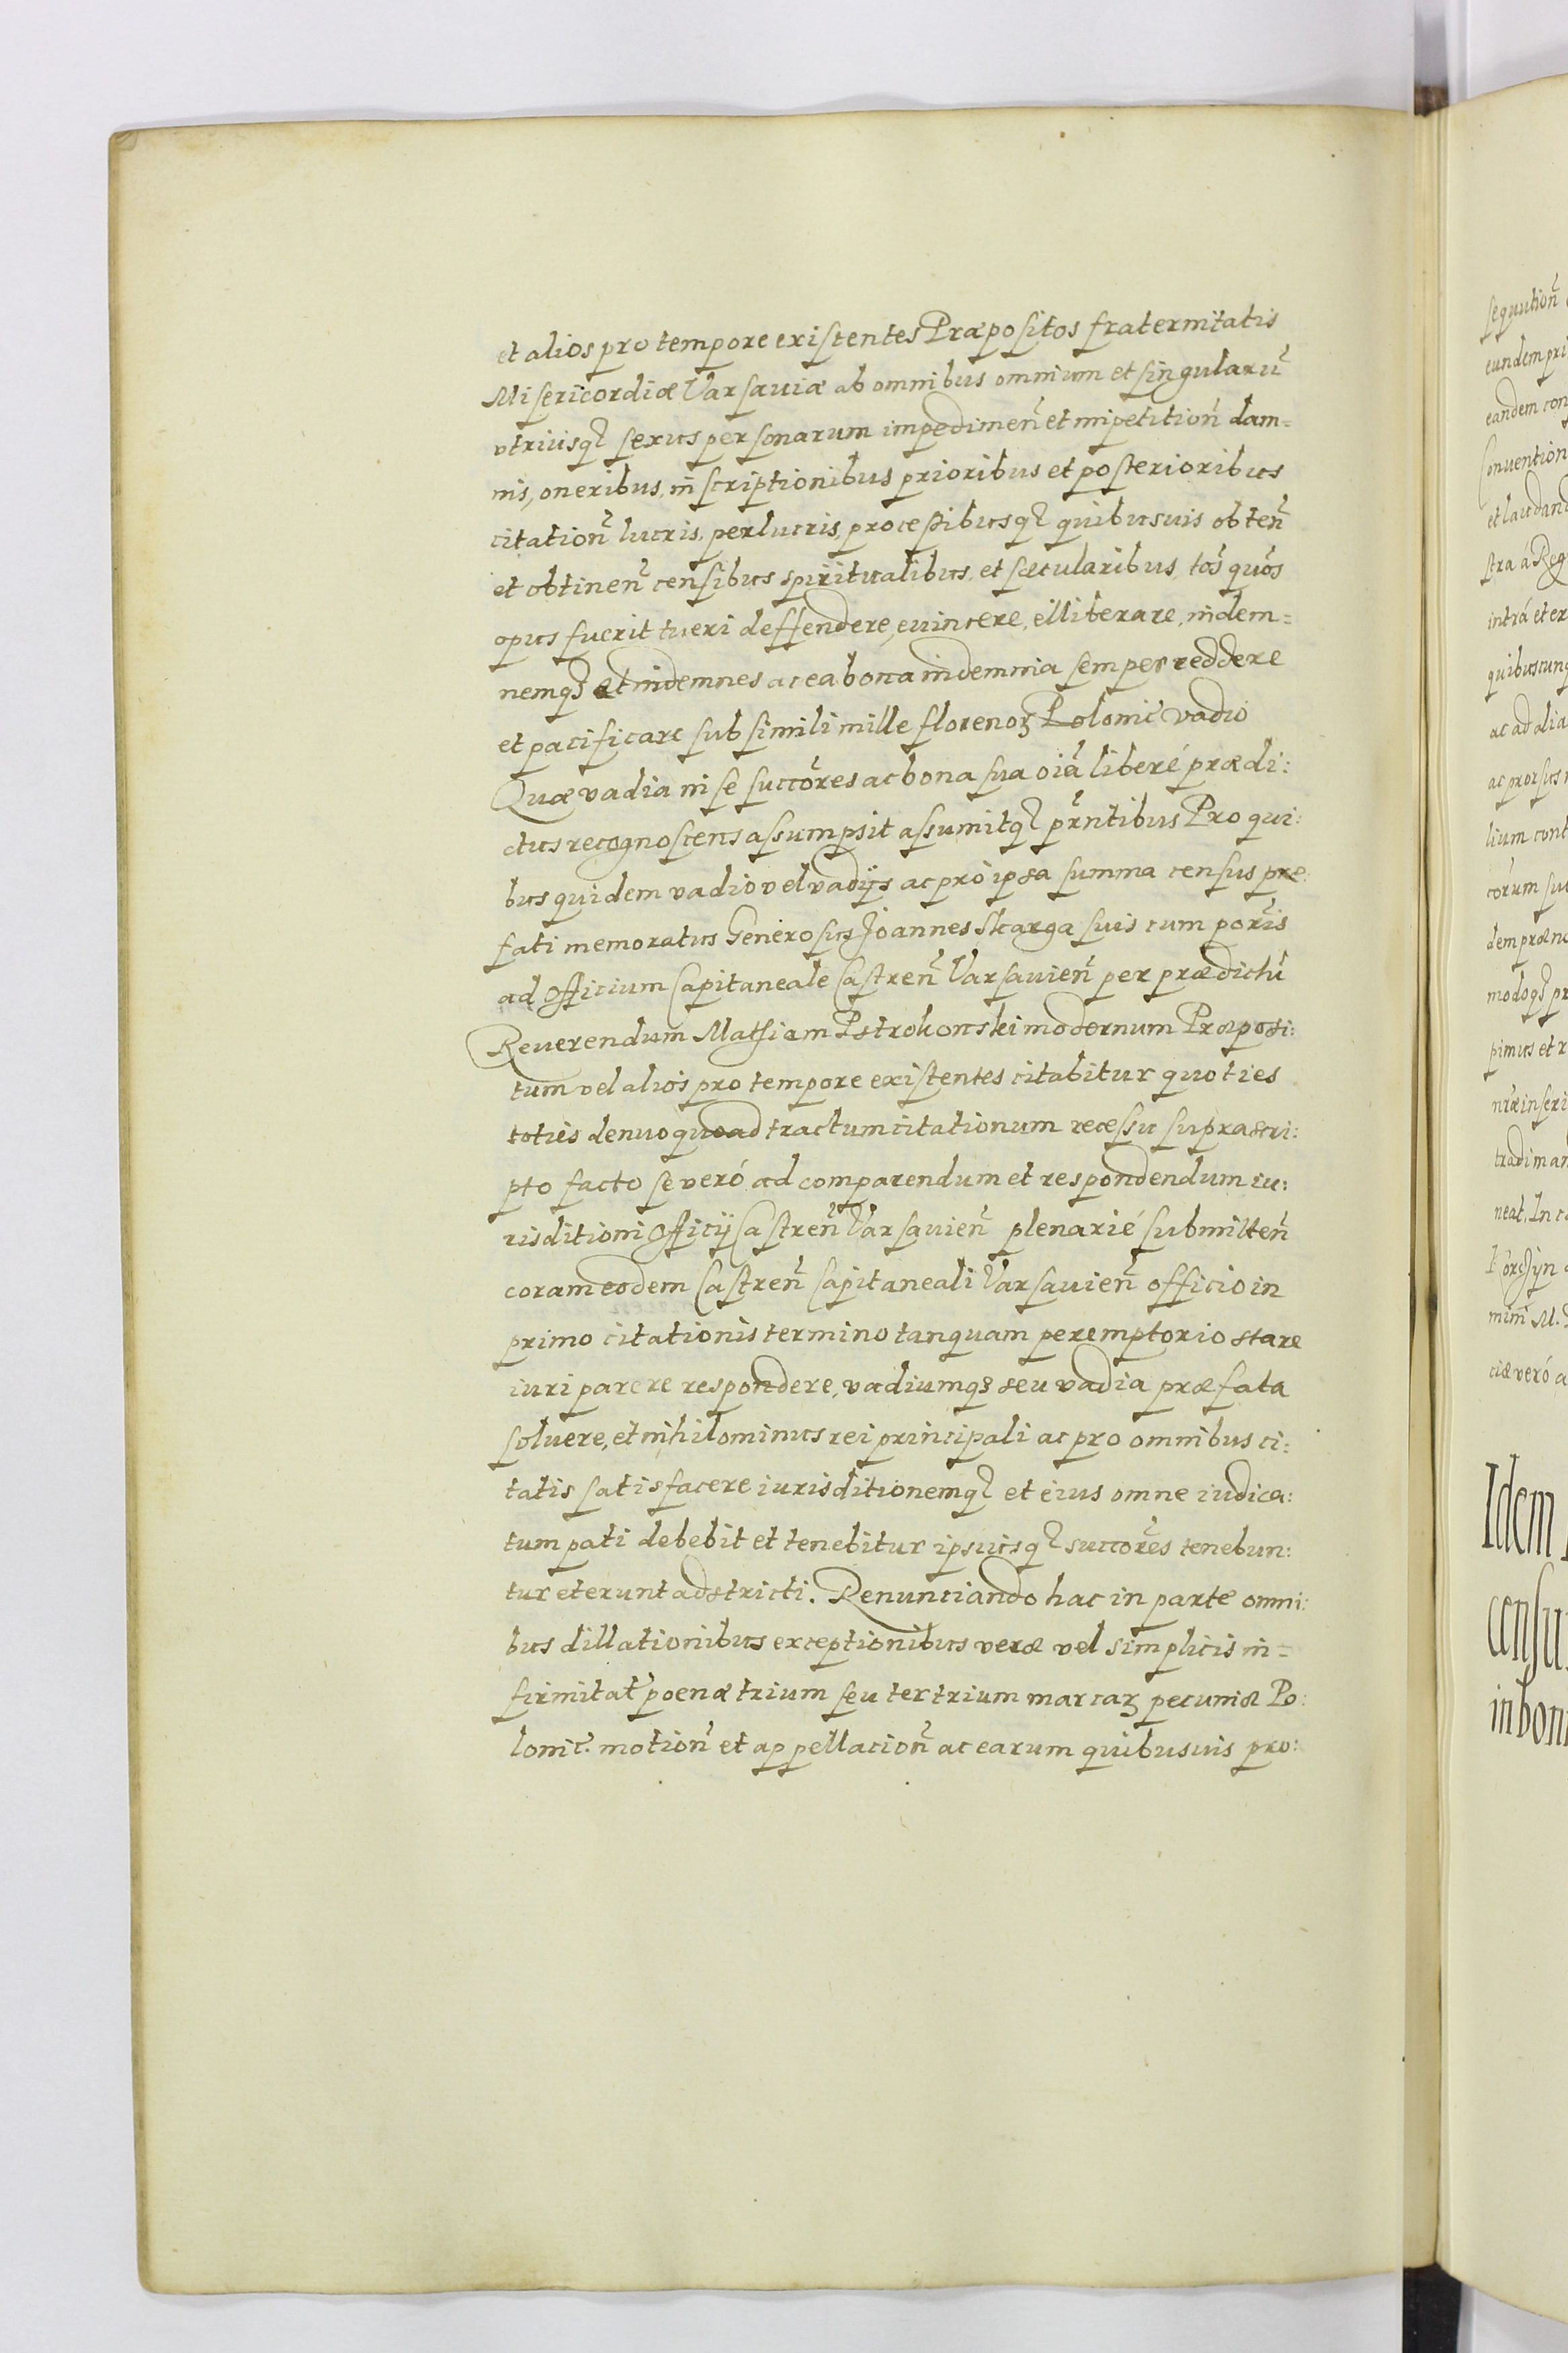 et alios pro tempore existentes Præpositos fraternitatis
Misericordiæ Varsaviæ ab omnibus omnium et singularũ
vtriusq̃ sexus personarum impedimeñ et impetitioñ dam=
nis, oneribus, inscriptionibus prioribus et posterioribus
citatioñ lucris, perlucris, processibusq̃ quibusuis obteñ
et obtineñ censibus spiritualibus, et sæcularibus, tos̃ quos̃
opus fuerit tueri deffendere, euincere, elliberare, indem=
nemqȝ et indemnes ac ea bona indemnia semper reddere
et pacificare sub simili mille florenoꝝ Polonic̃ vadio
Quæ vadia in se succõres ac bona sua oĩa liberé prædi:
ctus recognoscens assumpsit assumitq̃ pr̃ntibus Pro qui:
bus quidem vadio vel vadijs ac pro ipsa summa census præ:
fati memoratus Generosus Joannes Skarga suis cum põris
ad Officium Capitaneale Castreñ Varsavieñ per prædictũ
Reuerendum Mathiam Pstrokonski modernum Præposi:
tum vel alios pro tempore existentes citabitur quoties
toties denuo quoad tractum citationum recessu suprascri:
pto facto se veró ad comparendum et respondendum iu:
risditioni Officij Castreñ Varsavieñ plenarié submitteñ
coram eodem Castreñ Capitaneali Varsavieñ officio in
primo citationis termino tanquam peremptorio stare
iuri parere respondere, vadiumqȝ seu vadia præfata
soluere, et nihilominus rei principali ac pro omnibus ci:
tatis satisfacere iurisditionemq̃ et eius omne iudica:
tum pati debebit et tenebitur ipsiusq̃ succõres tenebun:
tur et erunt adstricti. Renunciando hac in parte omni:
bus dillationibus exceptionibus veræ vel simplicis in=
firmitat̃ poenæ trium seu ter trium marcaꝝ pecuniæ Po:
lonic̃. motioñ et appellacioñ ac earum quibusuis pro:
sequutioñ
eundem pri
eandem con
Convention
et laudand
stra á Reg
intrá et ex
quibuscunq
ac ad alia
ac prorsus
lium cont
corum su
dem præno
modoqȝ pr
pimus et r
ntræ inseri
tradi man
neat. In c
miñ M.
ciæ veró a
Idem
censu
in boni